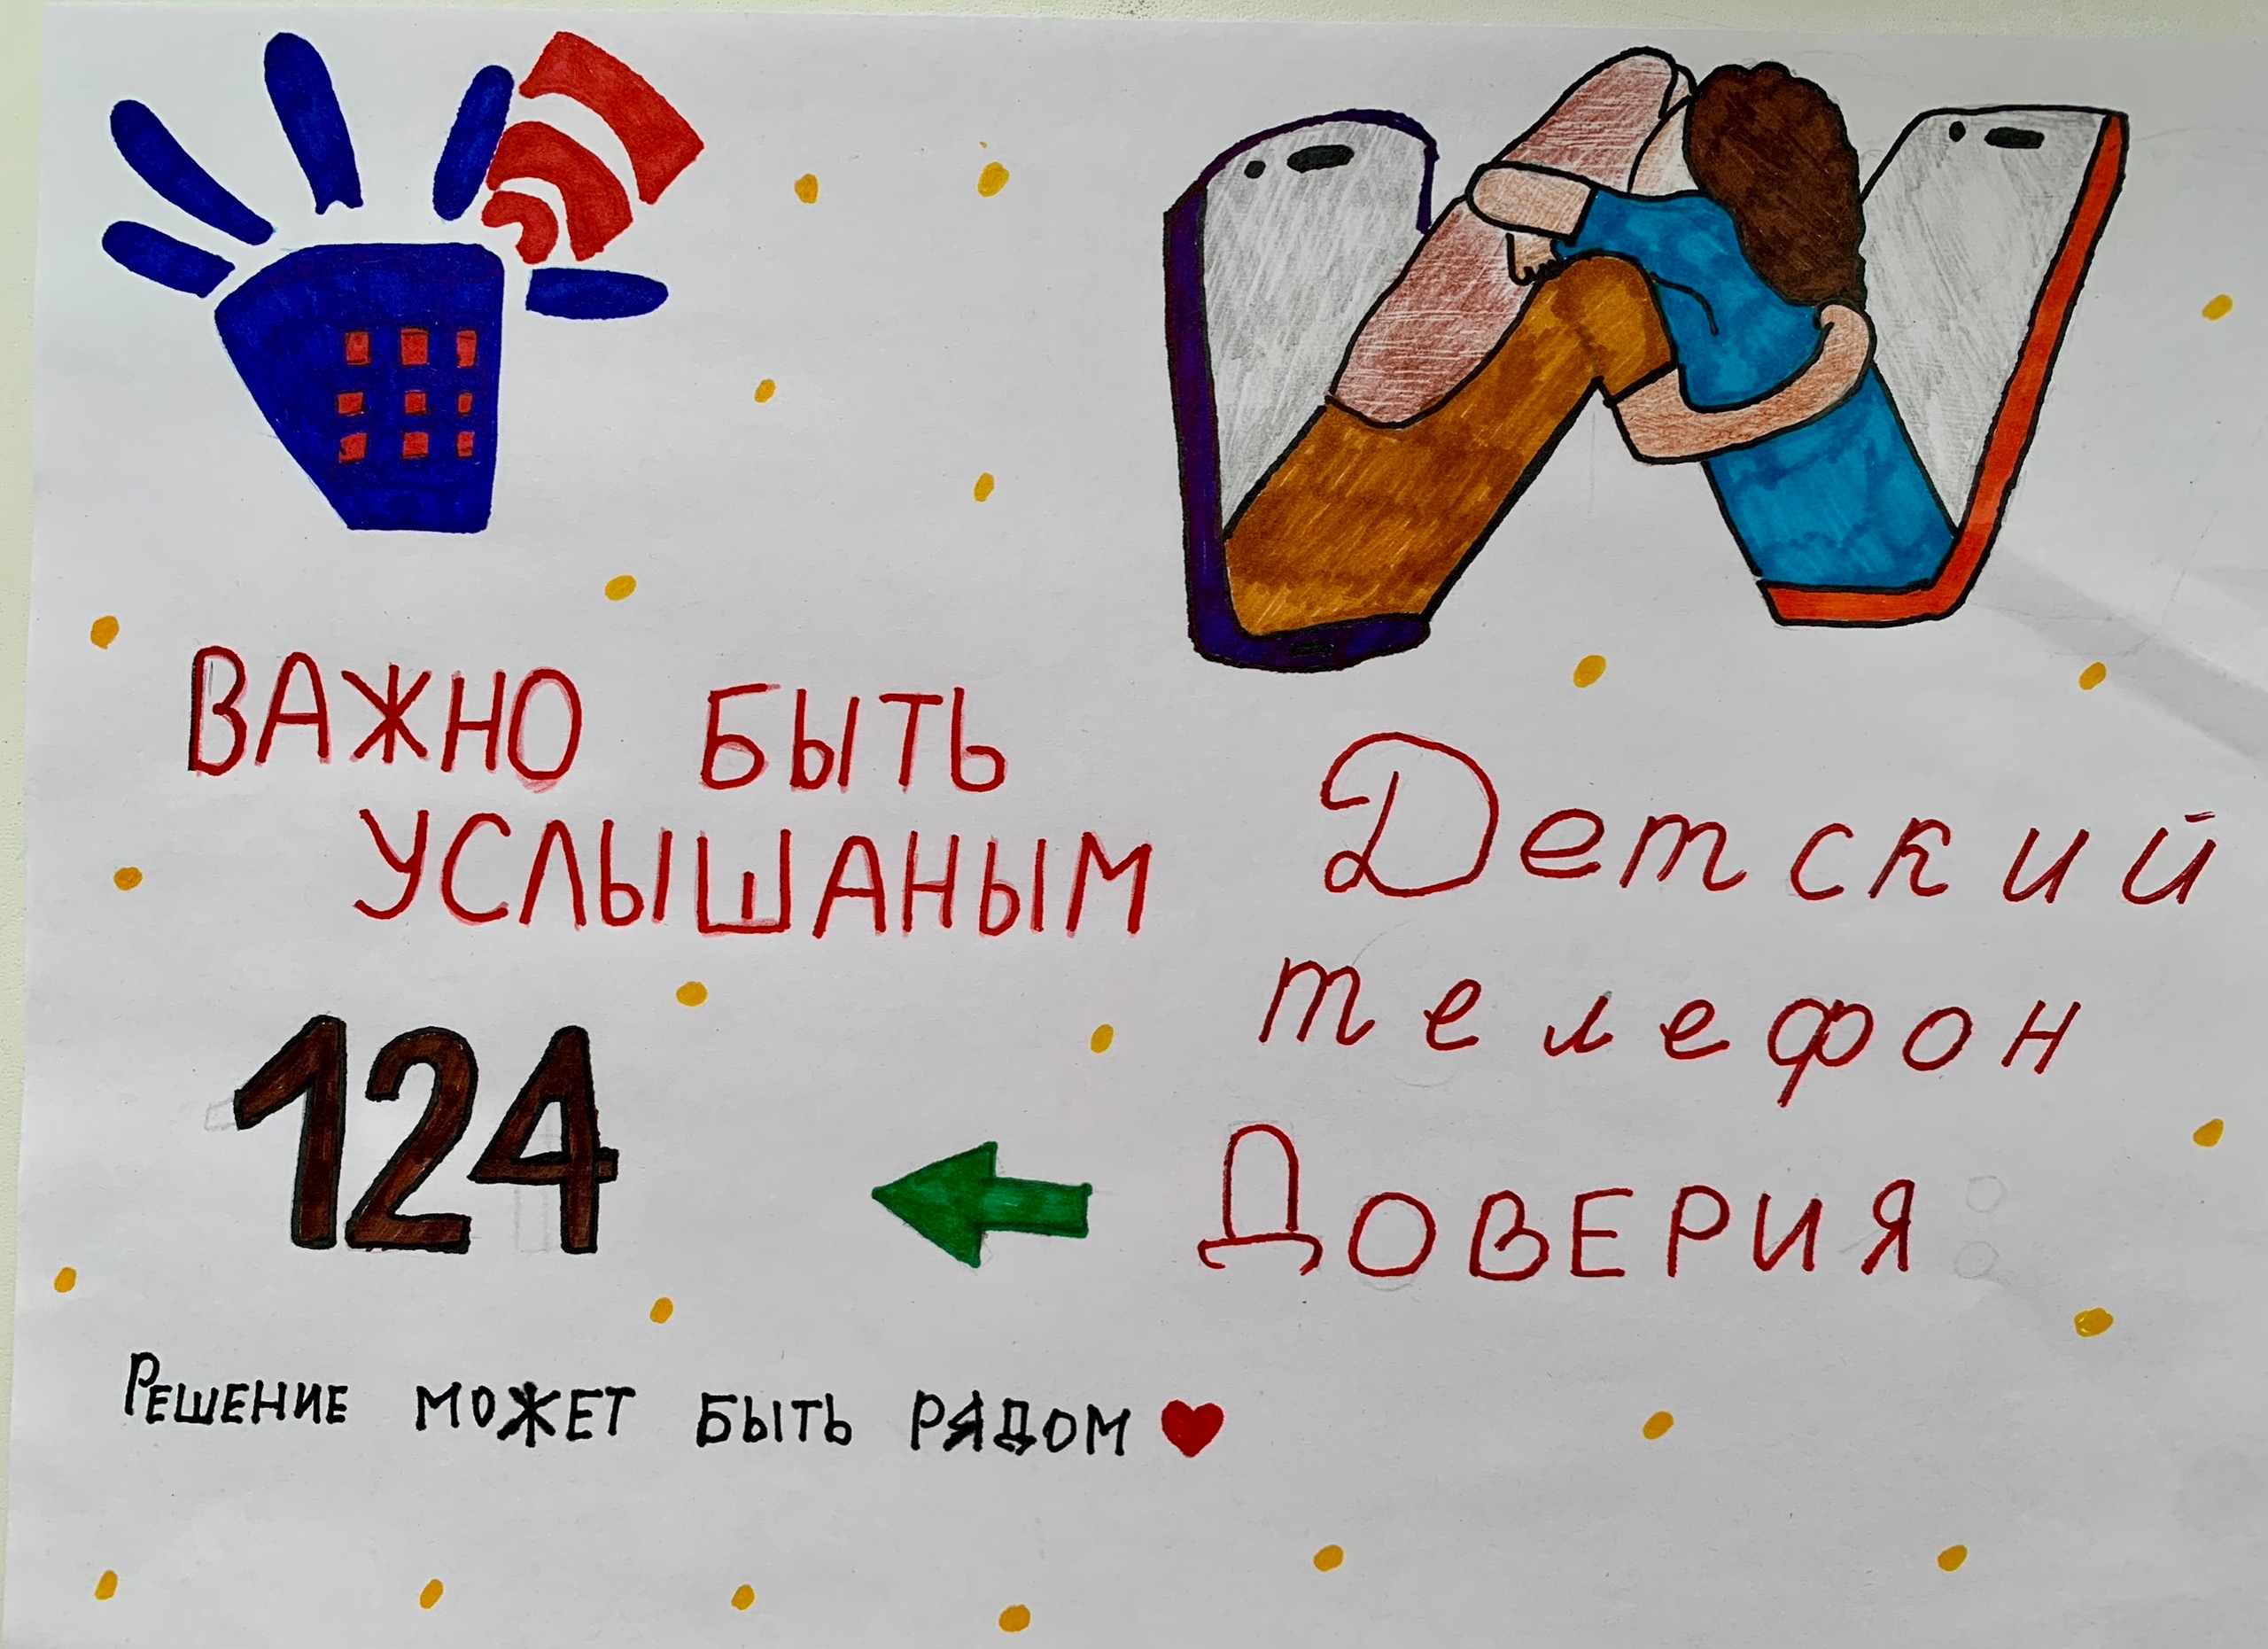 ВАЖНО БЫТЬ
УСЛЫШАНЫМ
Детский
телефон
ДОВЕРИЯ
124
РЕШЕНИЕ МОЖЕТ БЫТЬ РЯДОМ